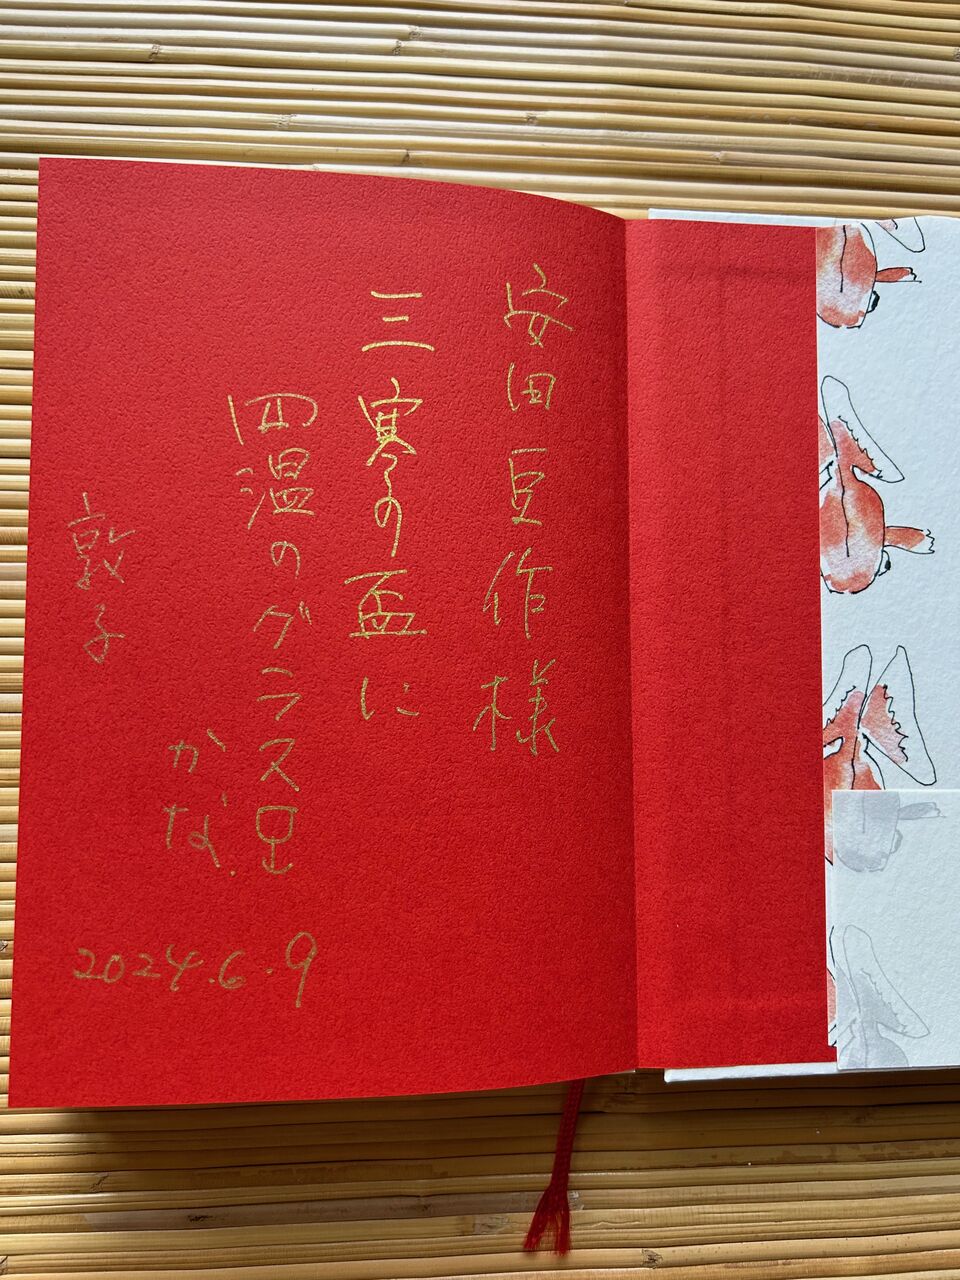 安田豆作様
三寒の盃に
四温のグラス豆
かな
敦子
2024.6.9